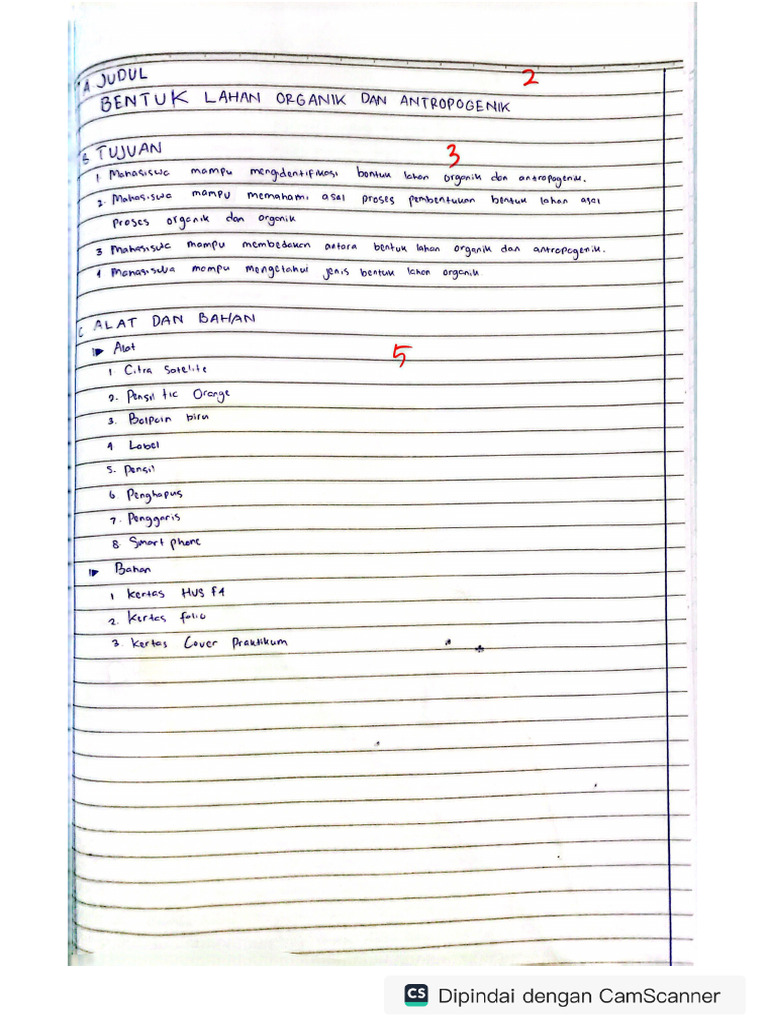 A JUDUL
2
BENTUK LAHAN ORGANIK DAN ANTROPOGENIK
B TUJUAN
3
1 Mahasiswa mampu mengidentifikasi bentuk lahan organik dan antropogenik.
2. Mahasiswa mampu memahami asal proses pembentukan bentuk lahan asal
Proses organik dan organik
3 Mahasiswa mampu membedakan antara bentuk lahan organik dan antropogenik.
4 Mahasiswa mampu mengetahui jenis bentuk lahan organik
C ALAT DAN BAHAN
Alat
5
1. Citra Satelite
2. Pensil tic Orange
3. Bolpoin biru
4 Label
5. Pensil
6 Penghapus
7. Penggaris
8. Smart phone
Bahan
1 Kertas HVS F4
2. Kertas folio
3. Kertas Cover Praktikum
CS Dipindai dengan CamScanner